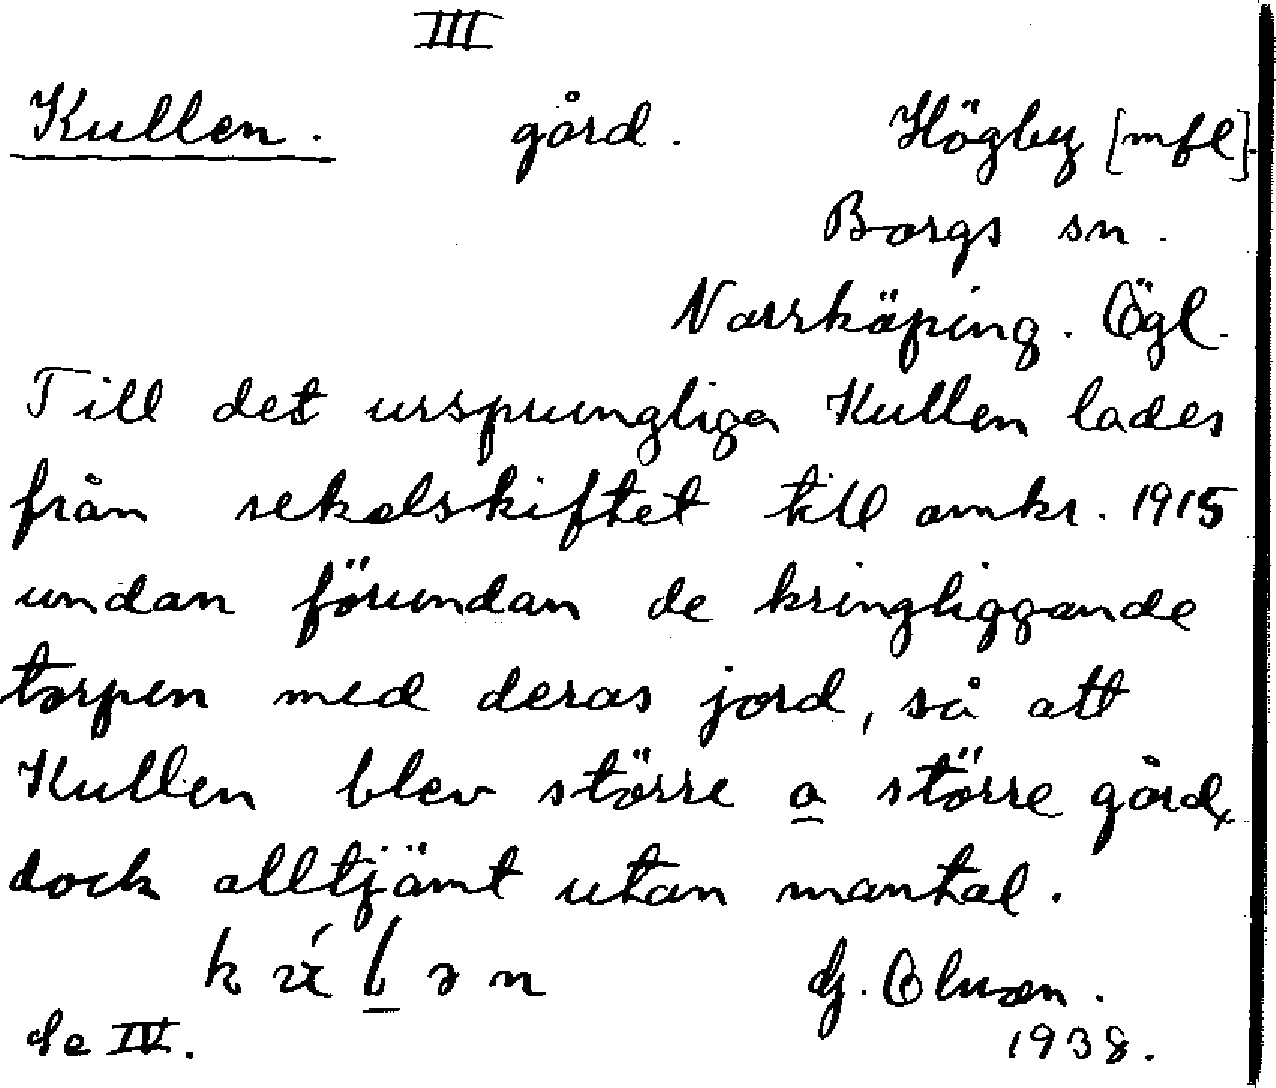 III
Kullen. gård. Högby [mfl].
Borgs sn.
Norrköping. Ögl.
Till det ursprungliga Kullen lades
från rekolskiftet till omkr. 1915
undan förundan de kringliggande
torpen med deras jord, så att
Kullen blev större o större gård,
dock alltjämt utan mantal.
G. Oluson.
Se IV. 1938.